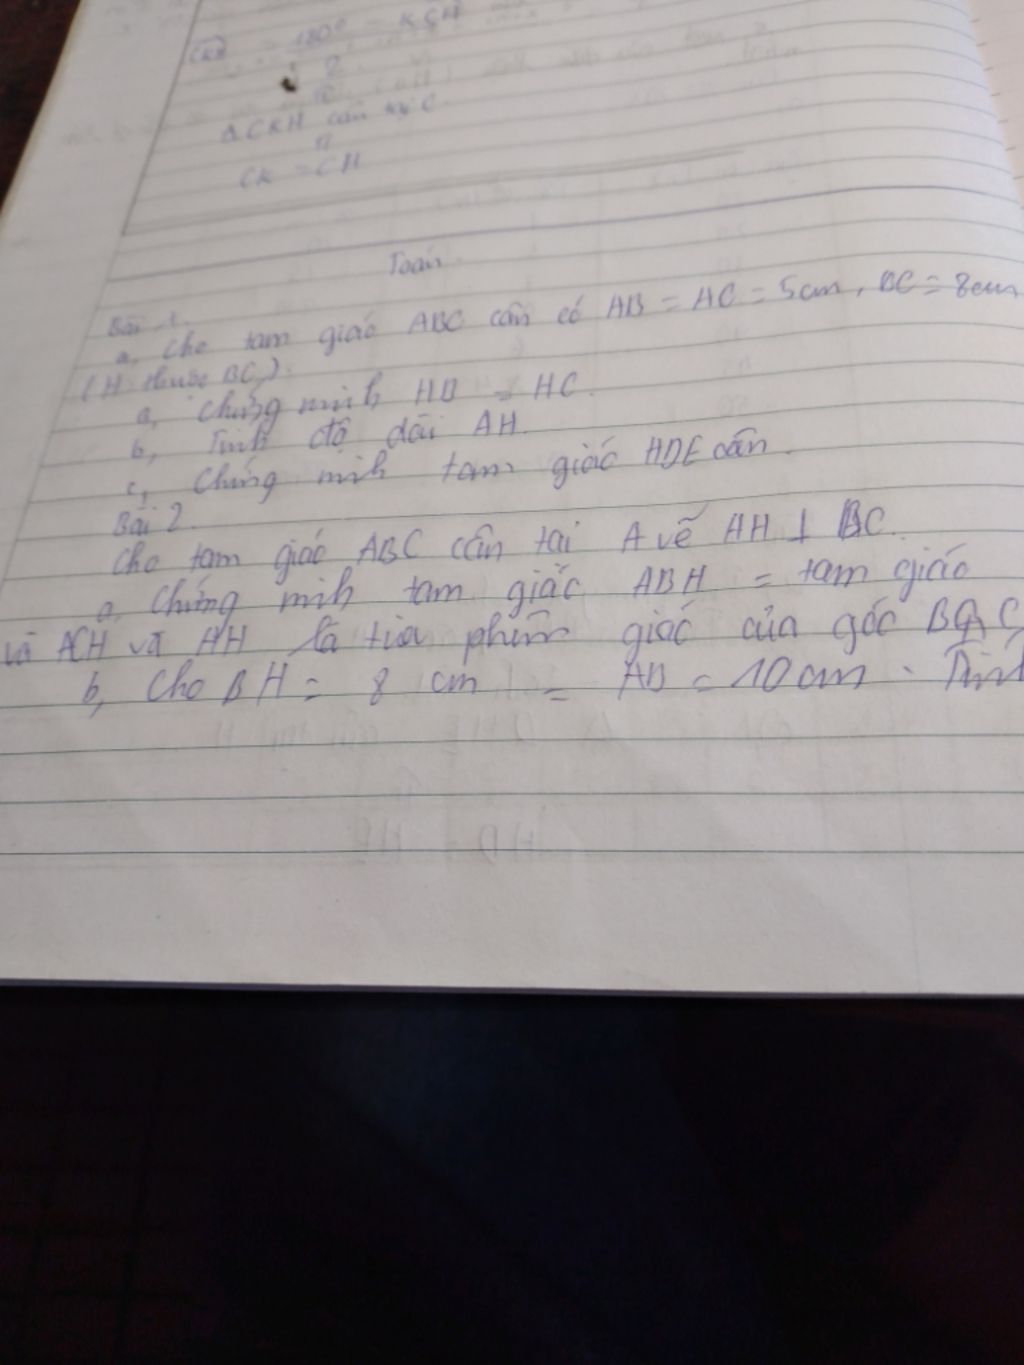 = 180° - KCH
2
Δ CKH cân tại C
CK = CH
Toán
Bài 1.
a, Cho tam giác ABC cân có AB = AC = 5cm, BC = 8cm
(H thuộc BC)
a, Chứng minh HB = HC.
b, Tính độ dài AH.
c, Chứng minh tam giác HDE cân.
Bài 2.
Cho tam giác ABC cân tai A vẽ AH ⊥ BC.
a, Chứng minh tam giác ABH = tam giác
ACH và AH là tia phân giác của góc BAC
b, Cho BH = 8 cm = AB = 10cm . Tính